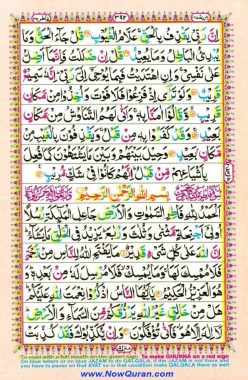 اِنَّ رَبِّیْ یَقْذِفُ بِالْحَقِّ عَلَّامُ الْغُیُوْبِ قُلْ جَآءَ الْحَقُّ وَمَا
یُبْدِئُ الْبَاطِلُ وَمَا یُعِیْدُ قُلْ اِنْ ضَلَلْتُ فَاِنَّمَاۤ اَضِلُّ
عَلٰی نَفْسِیْ وَاِنِ اهْتَدَیْتُ فَبِمَا یُوْحِیْۤ اِلَیَّ رَبِّیْ اِنَّهٗ سَمِیْعٌ
قَرِیْبٌ وَلَوْ تَرٰۤی اِذْ فَزِعُوْا فَلَا فَوْتَ وَاُخِذُوْا مِنْ مَّكَانٍ
قَرِیْبٍ وَّقَالُوْۤا اٰمَنَّا بِهٖ وَاَنّٰی لَهُمُ التَّنَاوُشُ مِنْ مَّكَانٍۭ
بَعِیْدٍ وَّقَدْ كَفَرُوْا بِهٖ مِنْ قَبْلُ وَیَقْذِفُوْنَ بِالْغَیْبِ مِنْ
مَّكَانٍۭ بَعِیْدٍ وَحِیْلَ بَیْنَهُمْ وَبَیْنَ مَا یَشْتَهُوْنَ كَمَا فُعِلَ
بِاَشْیَاعِهِمْ مِّنْ قَبْلُ اِنَّهُمْ كَانُوْا فِیْ شَكٍّ مُّرِیْبٍ
بِسْمِ اللّٰهِ الرَّحْمٰنِ الرَّحِیْمِ
اَلْحَمْدُ لِلّٰهِ فَاطِرِ السَّمٰوٰتِ وَالْاَرْضِ جَاعِلِ الْمَلٰٓئِكَةِ رُسُلًا
اُولِیْۤ اَجْنِحَةٍ مَّثْنٰی وَثُلٰثَ وَرُبٰعَ یَزِیْدُ فِی الْخَلْقِ مَا یَشَآءُ
اِنَّ اللّٰهَ عَلٰی كُلِّ شَیْءٍ قَدِیْرٌ مَا یَفْتَحِ اللّٰهُ لِلنَّاسِ مِنْ رَّحْمَةٍ
فَلَا مُمْسِكَ لَهَا وَمَا یُمْسِكْ فَلَا مُرْسِلَ لَهٗ مِنْۢ بَعْدِهٖ
وَهُوَ الْعَزِیْزُ الْحَكِیْمُ یٰۤاَیُّهَا النَّاسُ اذْكُرُوْا نِعْمَتَ اللّٰهِ عَلَیْكُمْ
هَلْ مِنْ خَالِقٍ غَیْرُ اللّٰهِ یَرْزُقُكُمْ مِّنَ السَّمَآءِ وَالْاَرْضِ
لَاۤ اِلٰهَ اِلَّا هُوَ فَاَنّٰی تُؤْفَكُوْنَ وَاِنْ یُّكَذِّبُوْكَ فَقَدْ كُذِّبَتْ
To read with a full mouth on the green sign. To make GHUNNA on a red sign
On blue letters or on blue JAZAM to do QALQALA. If the JAZAM is not there and
you have to pause on that AYAT so in that condition make QALQALA there as well
www.NowQuran.com